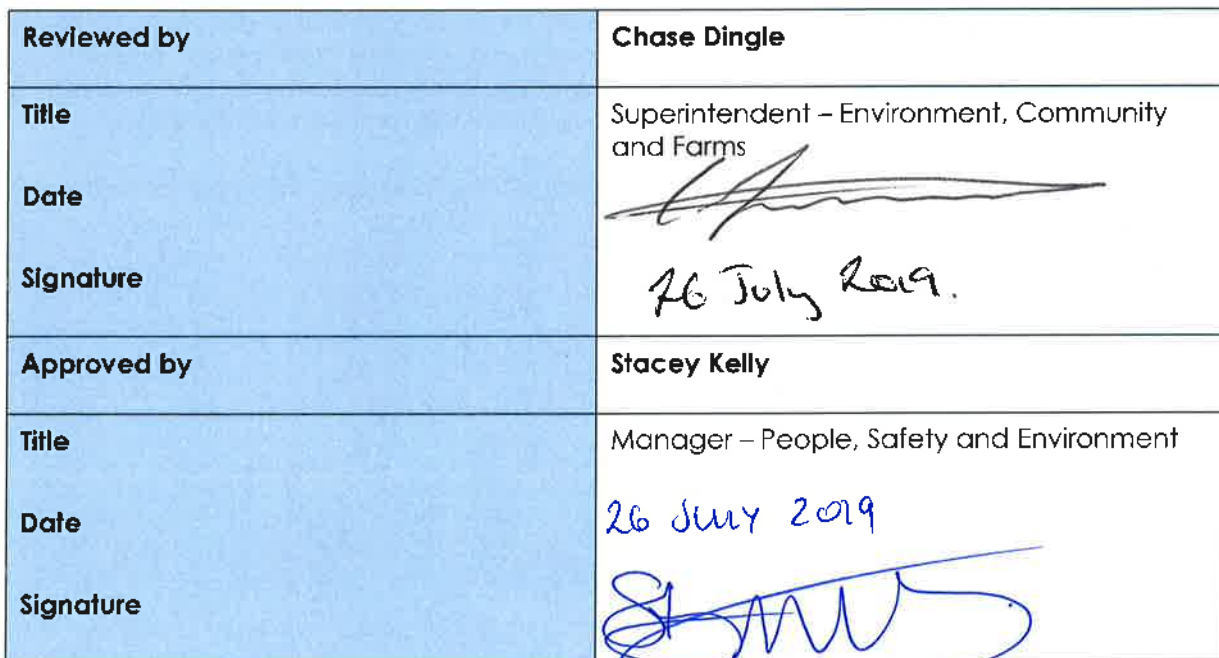 Reviewed by Chase Dingle
Title Superintendent – Environment, Community
and Farms
Date
Signature 26 July 2019.
Approved by Stacey Kelly
Title Manager – People, Safety and Environment
Date 26 JULY 2019
Signature